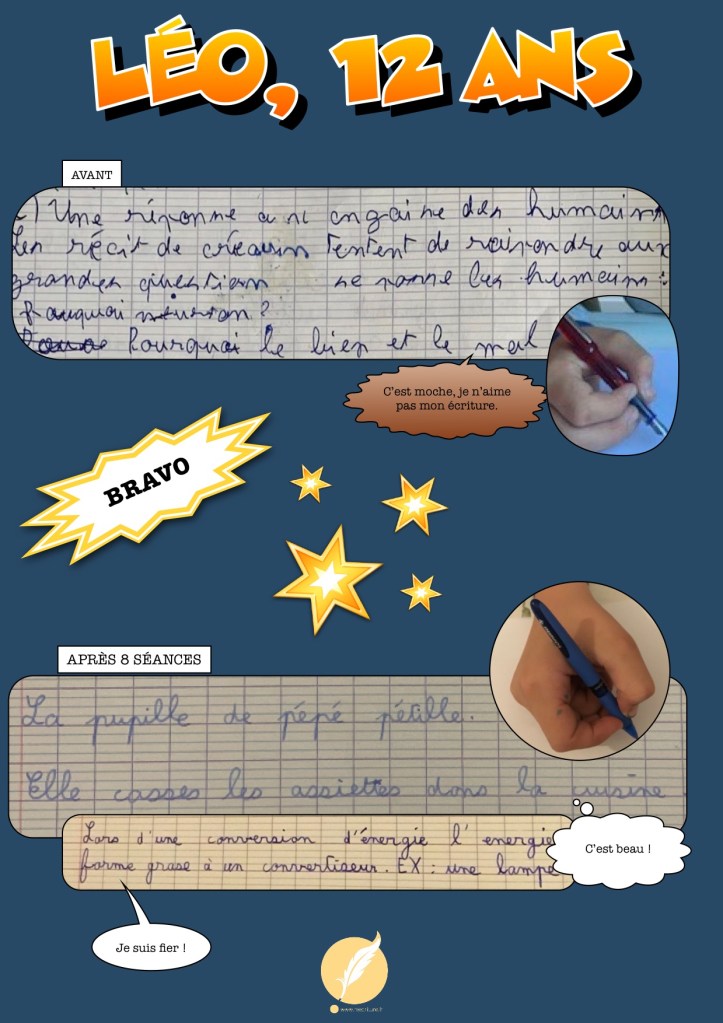 LÉO, 12 ANS
AVANT
Une réponne a
des humains
Les récit de tentent de aux
grandes question se les humains :
Pourquoi
Pourquoi le bien et le mal
C'est moche, je n'aime
pas mon écriture.
BRAVO
APRÈS 8 SÉANCES
La pupille de pépé pétille.
Elle casses les assiettes dans la cuisine
Lors d'une conversion d'énergie l' energie
forme grase à un convertiseur. EX : une lampe
C'est beau !
Je suis fier !